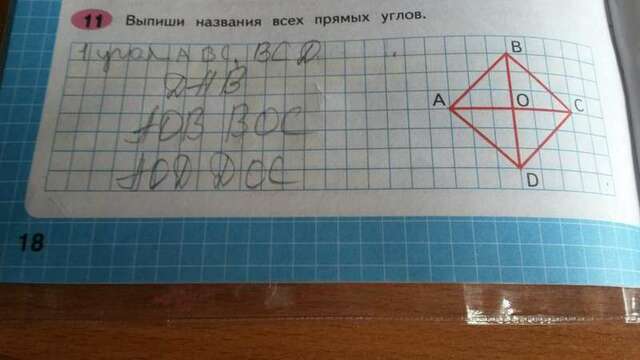 11 Выпиши названия всех прямых углов.
1 угол АВС, ВСD
DAB
AOB BOC
AOD DOC
B
A O C
D
18